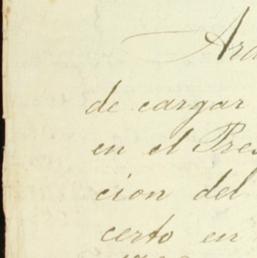 Ara
de cargar
en el Pre
cion del
certo en